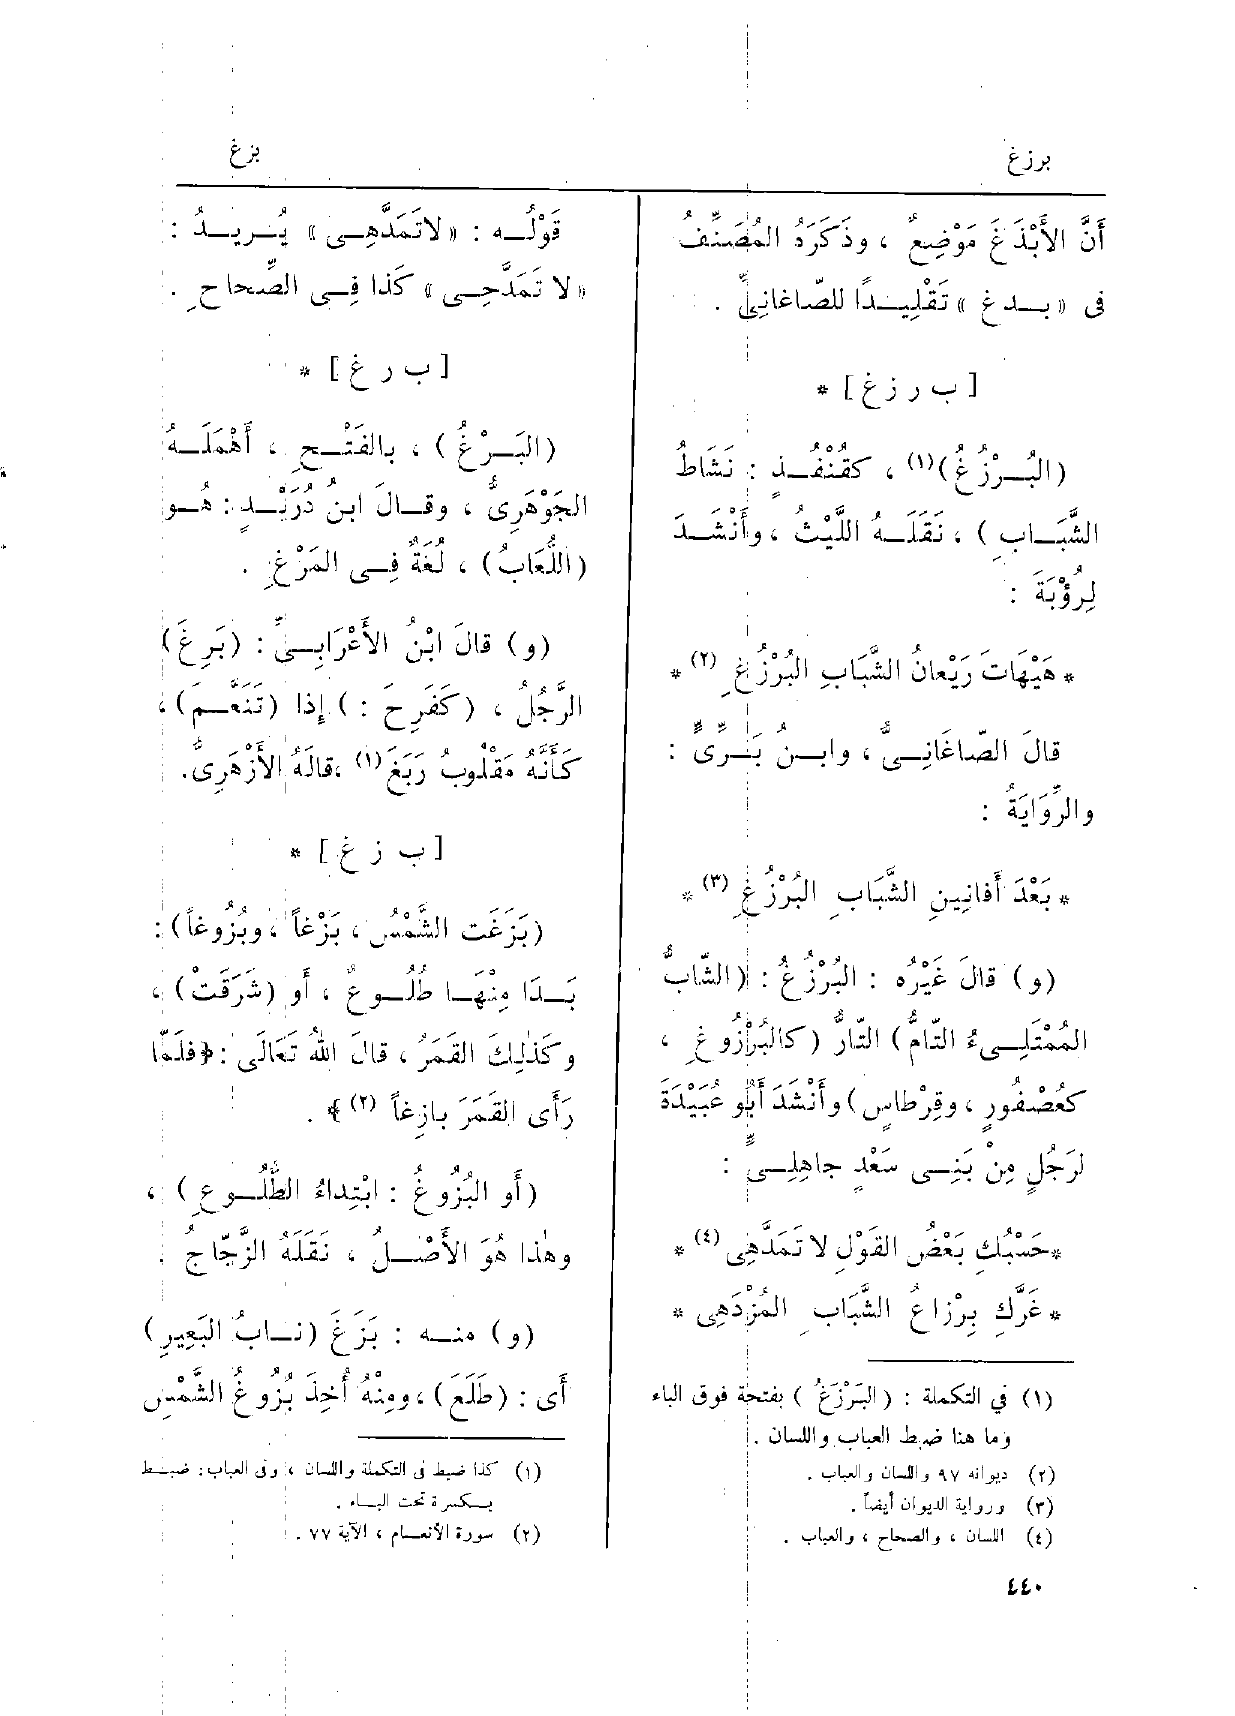 برزغ
بزغ
أَنَّ الأَبْذَغَ مَوْضِعٌ ، وذَكَرَهُ المُصَنِّفُ
فى « بـدغ » تَقْلِيـدًا للصّاغانِىِّ .
[ ب ر ز غ ] *
( البُـرْزُغُ )(١) ، كقُنْفُـذٍ : نَشَاطُ
الشَّبَـابِ ) ، نَقَلَـهُ اللَّيْثُ ، وأَنْشَـدَ
لِرُؤْبَةَ :
* هَيْهَاتَ رَيْعانُ الشَّبَابِ البُرْزُغِ (٢) *
قالَ الصّاغَانِـىُّ ، وابـنُ بَـرِّىٍّ :
والرِّوَايَةُ :
* بَعْدَ أَفانِينِ الشَّبَابِ البُرْزُغِ (٣) *
(و) قالَ غَيْرُه : البُرْزُغُ : ( الشّابُّ
المُمْتَلِـىءُ التّامُّ ) التّارُّ ( كالبُرْزُوغِ ،
كعُصْفُورٍ ، وقِرْطاسٍ ) وأَنْشَدَ أَبُو عُبَيْدَةَ
لرَجُلٍ مِنْ بَنِـى سَعْدٍ جاهِلِـىٍّ :
* حَسْبُكِ بَعْضُ القَوْلِ لا تَمَدَّهِى (٤) *
* غَرَّكِ بِرْزاغُ الشَّبَابِ المُزْدَهِى *
(١) في التكملة : ( البَرْزَغُ ) بفتحة فوق الباء
وما هنا ضبط العباب واللسان .
(٢) ديوانه ٩٧ واللسان والعباب .
(٣) ورواية الديوان أيضاً .
(٤) اللسان ، والصحاح ، والعباب .
قَوْلُـه : « لاتَمَدَّهِـى » يُـرِيـدُ :
« لا تَمَدَّحِـى » كَذا فِـى الصِّحاحِ .
[ ب ر غ ] *
( البَـرْغُ ) ، بالفَتْـحِ ، أَهْمَلَـهُ
الجَوْهَرِىُّ ، وقـالَ ابنُ دُرَيْـدٍ : هُـو
( اللُّعَابُ ) ، لُغَةٌ فِـى المَرْغِ .
(و) قالَ ابْنُ الأَعْرَابِـىِّ : ( بَرِغَ )
الرَّجُلُ ، ( كَفَرِحَ : ) إِذا ( تَنَعَّـمَ ) ،
كَأَنَّهُ مَقْلُوبُ رَبَغَ (١) ،قالَهُ الأَزْهَرِىُّ.
[ ب ز غ ] *
( بَزَغَت الشَّمْسُ ، بَزْغاً ، وبُزُوغاً ) :
بَـدَا مِنْهَـا طُلُـوعٌ ، أَو ( شَرَقَتْ ) ،
وكَذٰلِكَ القَمَرُ ، قالَ اللهُ تَعَالَى : ﴿ فلَمّا
رَأَى القَمَرَ بازِغاً (٢) ﴾ .
( أَو البُزُوغُ : ابْتِداءُ الطُّلُـوعِ ) ،
وهٰذا هُوَ الأَصْـلُ ، نَقَلَهُ الزَّجّاجُ .
(و) منـه : بَزَغَ ( نـابُ البَعِيرِ )
أَى : ( طَلَعَ ) ، ومِنْهُ أُخِذَ بُزُوغُ الشَّمْسِ
(١) كذا ضبط فى التكملة واللسان ، وفى العباب : ضبـط
بـكسرة تحت البـاء .
(٢) سورة الأنعـام ، الآية ٧٧ .
٤٤٠